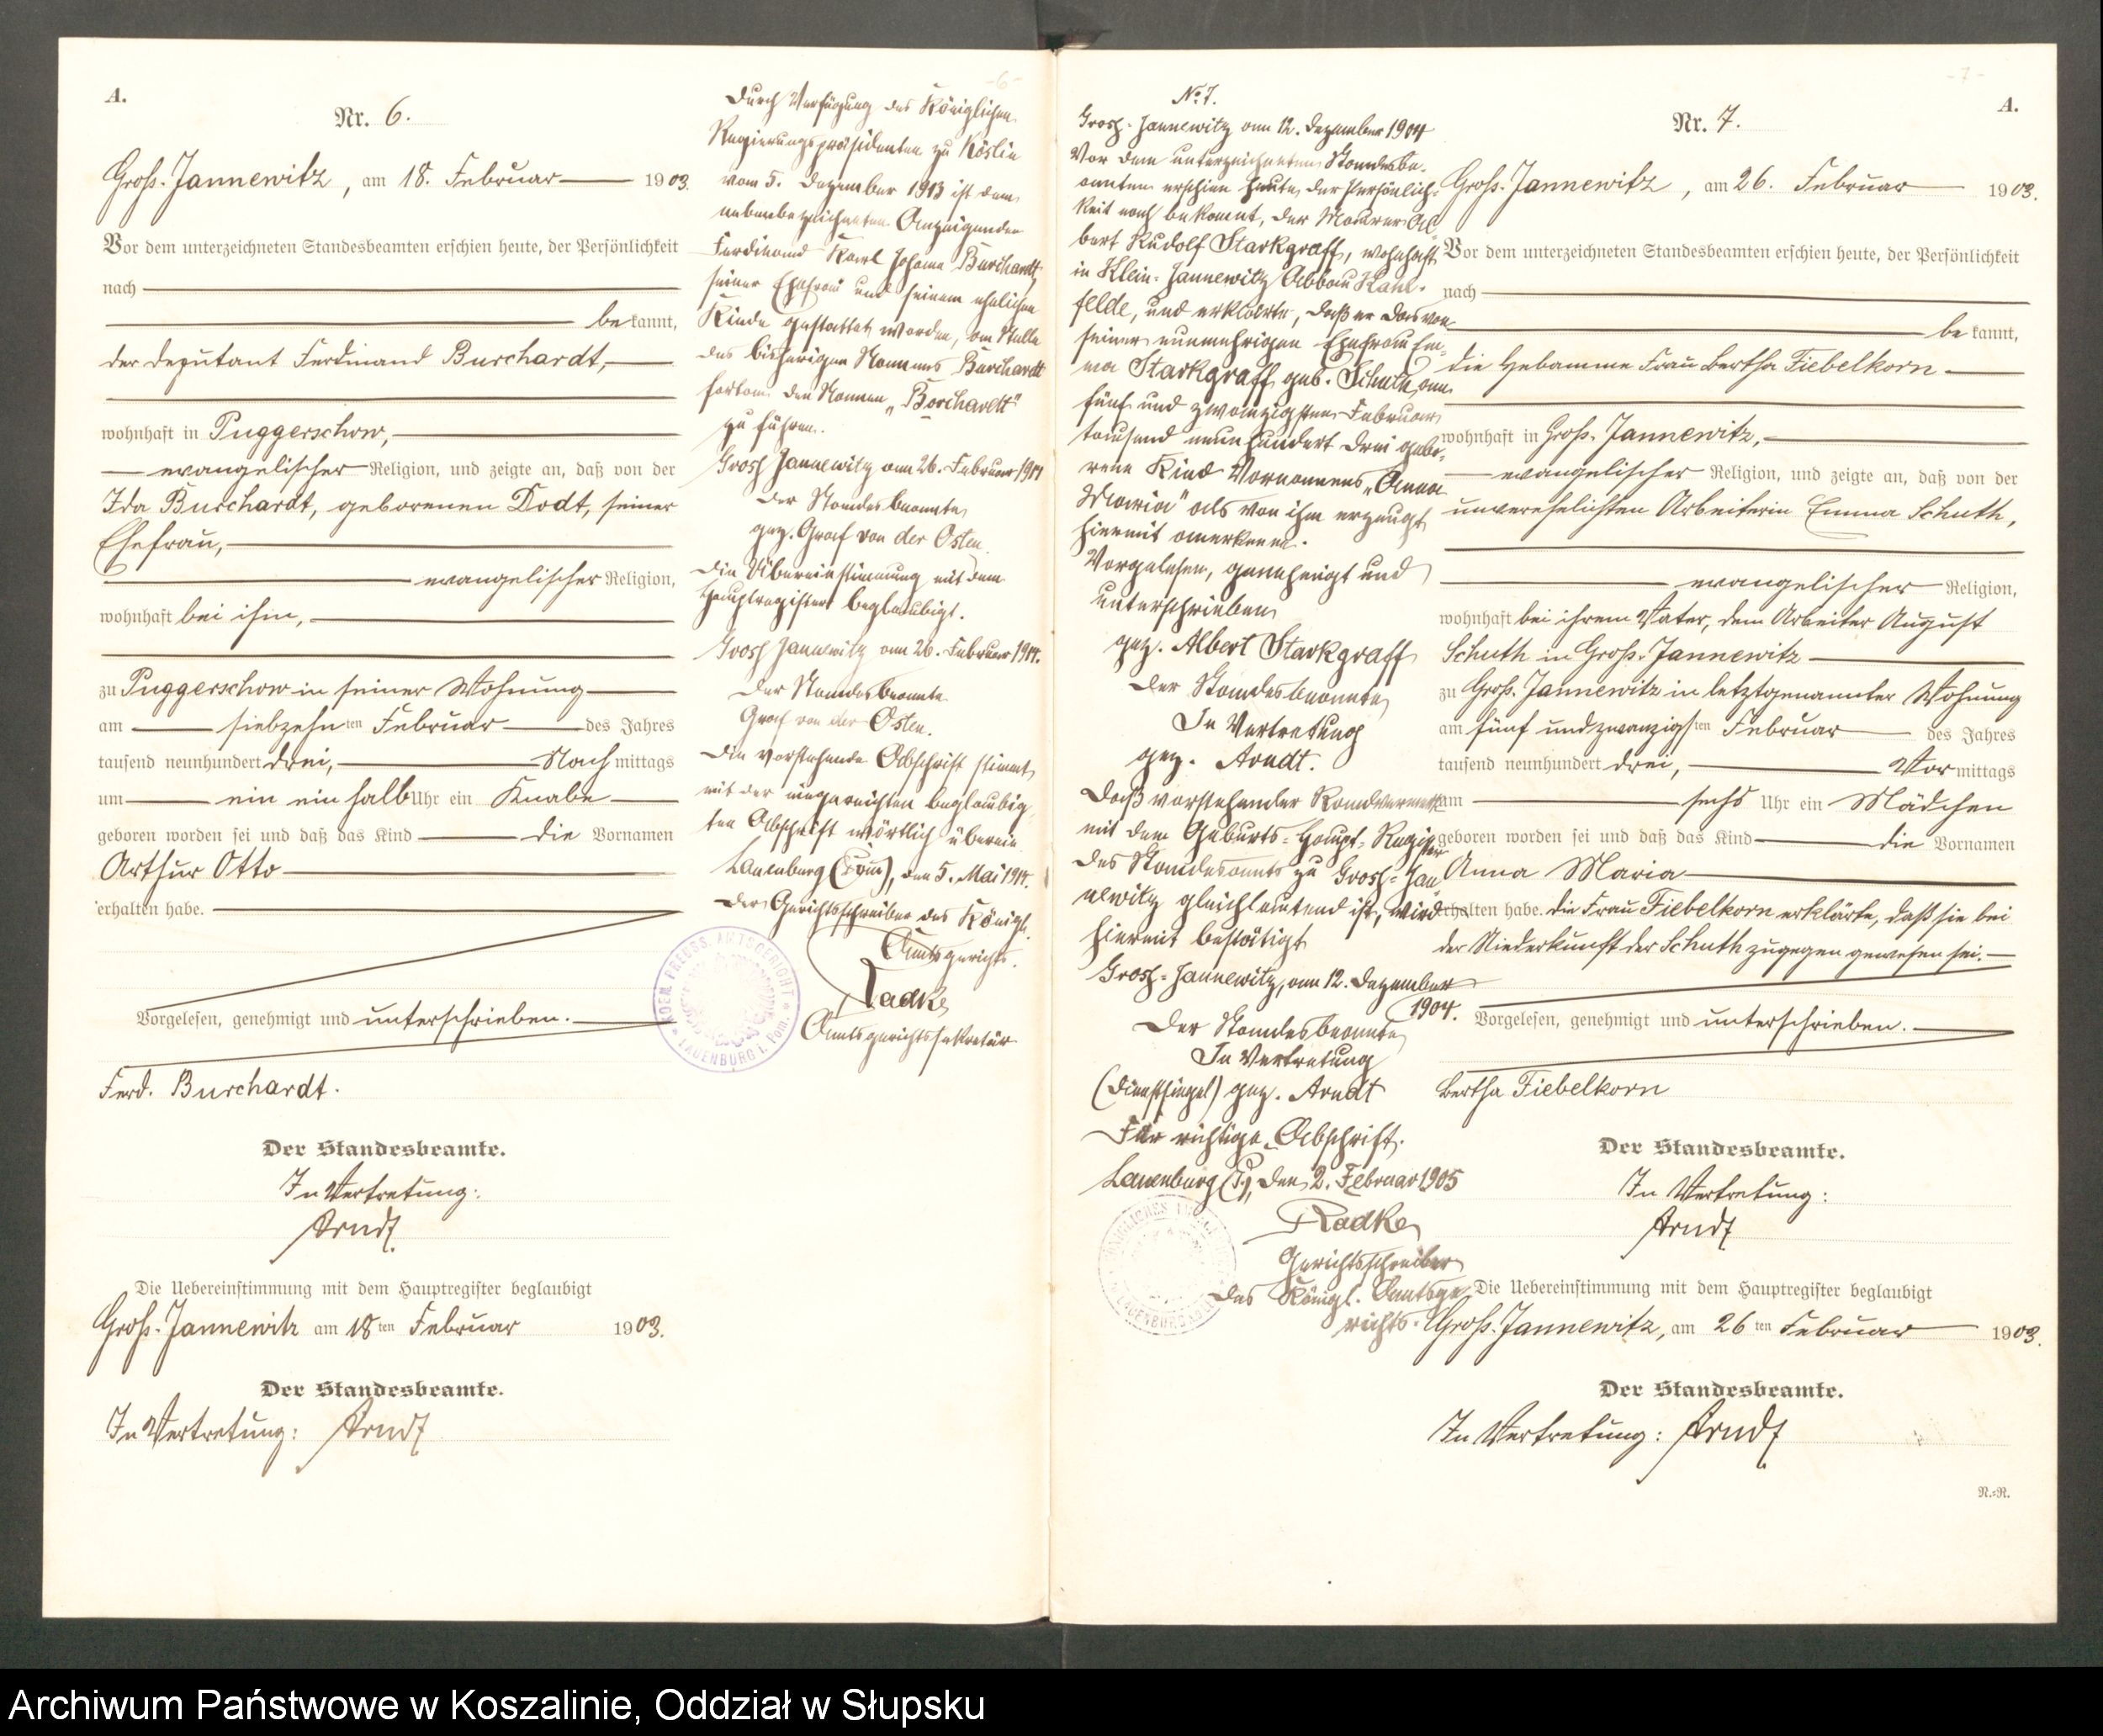 A.
Nr. 6.
Groß-Jannewitz, am 18. Februar 1903.
Vor dem unterzeichneten Standesbeamten erschien heute, der Persönlichkeit
nach
bekannt,
der Deputant Ferdinand Burchardt,
wohnhaft in Puggerschow,
evangelischer Religion, und zeigte an, daß von der
Ida Burchardt, geborenen Dodt, seiner
Ehefrau,
evangelischer Religion,
wohnhaft bei ihm,
zu Puggerschow in seiner Wohnung
am siebzehnten Februar des Jahres
tausend neunhundert drei, Nachmittags
um ein ein halb Uhr ein Knabe
geboren worden sei und daß das Kind die Vornamen
Arthur Otto
erhalten habe.
Vorgelesen, genehmigt und unterschrieben.
Ferd. Burchardt.
Der Standesbeamte.
In Vertretung:
Arndt
Die Uebereinstimmung mit dem Hauptregister beglaubigt
Groß-Jannewitz am 18ten Februar 1903.
Der Standesbeamte.
In Vertretung: Arndt
-6-
Durch Verfügung des Königlichen
Regierungspräsidenten zu Köslin
vom 5. Dezember 1913 ist dem
nebenbezeichneten Anzeigenden
Ferdinand Karl Johann Burchardt,
seiner Ehefrau und seinem ehelichen
Kinde gestattet worden, an Stelle
des bisherigen Namens Burchardt
fortan den Namen „Borchardt"
zu führen.
Grosz Jannewitz am 26. Februar 1914
Der Standesbeamte
gez. Graf von der Osten.
Die Übereinstimmung mit dem
Hauptregister beglaubigt.
Grosz Jannewitz am 26. Februar 1914.
Der Standesbeamte
Graf von der Osten.
Die vorstehende Abschrift stimmt
mit der eingereichten beglaubig-
ten Abschrift wörtlich überein
Lauenburg (Pom), den 5. Mai 1914.
Der Gerichtsschreiber des Königl.
Amtsgerichts.
Radke
Amtsgerichtssekretär
KOEN. PREUSS. AMTSGERICHT
* LAUENBURG I. Pom. *
No 7.
Grosz-Jannewitz am 12. Dezember 1904
Vor dem unterzeichneten Standesbe-
amten erschien heute, der Persönlich-
keit nach bekannt, der Maurer Al-
bert Rudolf Starkgraff, wohnhaft
in Klein-Jannewitz Abbau
felde, und erklärte, daß er das von
seiner nunmehrigen Ehefrau Em-
ma Starkgraff geb. Schuth, am
fünf und zwanzigsten Februar
tausend neunhundert drei gebo-
rene Kind Vornamens „Anna
Maria" als von ihm erzeugt
hiermit anerkenne.
Vorgelesen, genehmigt und
unterschrieben
gez. Albert Starkgraff
Der Standesbeamte
In Vertretung
gez. Arndt.
Daß vorstehender Randvermerk
mit dem Geburts-Haupt-Register
des Standesamts zu Grosz-Jan
newitz gleichlautend ist, wird
hiermit bestätigt
Grosz-Jannewitz, am 12. Dezember
1904.
Der Standesbeamte
In Vertretung
(Dienstsiegel) gez. Arndt
Für richtige Abschrift.
Lauenburg (P.), den 2. Februar 1905
Radke
Gerichtsschreiber
des Königl. Amtsge-
richts.
-7-
A.
Nr. 7.
Groß-Jannewitz, am 26. Februar 1903.
Vor dem unterzeichneten Standesbeamten erschien heute, der Persönlichkeit
nach
bekannt,
die Hebamme Frau Bertha Fiebelkorn
wohnhaft in Groß-Jannewitz,
evangelischer Religion, und zeigte an, daß von der
unverehelichten Arbeiterin Emma Schuth,
evangelischer Religion,
wohnhaft bei ihrem Vater, dem Arbeiter August
Schuth in Groß-Jannewitz
zu Groß-Jannewitz in letztgenannter Wohnung
am fünf und zwanzigsten Februar des Jahres
tausend neunhundert drei, Vormittags
um sechs Uhr ein Mädchen
geboren worden sei und daß das Kind die Vornamen
Anna Maria
erhalten habe. Die Frau Fiebelkorn erklärte, daß sie bei
der Niederkunft der Schuth zugegen gewesen sei.
Vorgelesen, genehmigt und unterschrieben.
Bertha Fiebelkorn
Der Standesbeamte.
In Vertretung:
Arndt
Die Uebereinstimmung mit dem Hauptregister beglaubigt
Groß-Jannewitz, am 26ten Februar 1903.
Der Standesbeamte.
In Vertretung: Arndt
N.=N.
Archiwum Państwowe w Koszalinie, Oddział w Słupsku